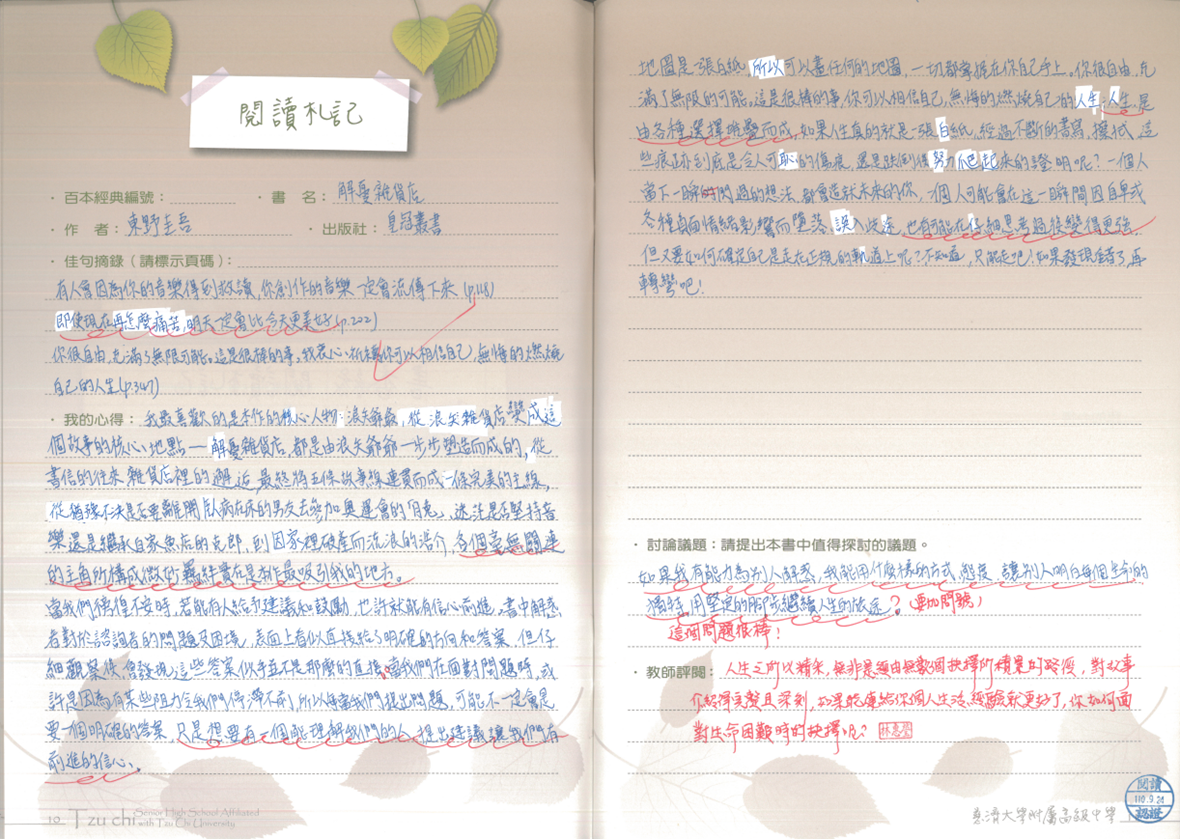 閱讀札記
·百本經典編號：
·書 名：解憂雜貨店
·作 者：東野圭吾
·出版社：皇冠叢書
·佳句摘錄（請標示頁碼）：
有人會因為你的音樂得到救贖,你創作的音樂一定會流傳下來(p.118)
即使現在再怎麼痛苦,明天一定會比今天更美好(p.202)
你很自由,充滿了無限可能。這是很棒的事,我衷心祈禱你可以相信自己,無悔的燃燒
自己的人生(p.347)
·我的心得：我最喜歡的是本作的核心人物:浪矢爺爺,從浪矢雜貨店變成這
個故事的核心地點—解憂雜貨店,都是由浪矢爺爺一步步塑造而成的,從
書信的往來,雜貨店裡的邂逅,最終將五條故事線連貫而成一條完美的主線,
從猶豫不決是否要離開臥病在床的男友去參加奧運會的月兔、迷茫是否堅持音
樂還是繼承自家魚店的克郎,到因家裡破產而流浪的浩介,各個毫無關連
的主角所構成微妙羈絆實在是本作最吸引我的地方。
當我們徬徨不安時,若能有人給予建議和鼓勵,也許就能有信心前進。書中解惑
者對於諮詢者的問題及困境,表面上看似直接給了明確的方向和答案,但仔
細觀察後,會發現這些答案似乎並不是那麼的直接,當我們在面對問題時,或
許是因為有某些阻力令我們停滯不前,所以每當我們提出問題,可能不一定會是
要一個明確的答案,只是想要有一個能理解我們的人,提出建議,讓我們有
前進的信心。
10 Tzu chi Senior High School Affiliated
with Tzu Chi University
地圖是一張白紙,所以可以畫任何的地圖,一切都掌握在你自己手上。你很自由,充
滿了無限的可能。這是很棒的事,你可以相信自己,無悔的燃燒自己的人生;人生是
由各種選擇堆疊而成,如果人生真的就是一張白紙,經過不斷的書寫、擦拭,這
些痕跡到底是令人可恥的傷痕,還是跌倒後努力爬起來的證明呢?一個人
當下一瞬時閃過的想法,都會造就未來的你,一個人可能會在這一瞬間因自卑或
各種負面情緒影響而墮落、誤入歧途,也有可能在仔細思考過後變得更強,
但又要如何確定自己是走在正規的軌道上呢?不知道,只能走吧!如果發現錯了,再
轉彎吧!
·討論議題：請提出本書中值得探討的議題。
如果我有能力為別人解惑,我能用什麼樣的方式、態度,讓別人明白每個生命的
獨特,用堅定的腳步繼續人生的旅途?(要加問號)
這個問題很棒!
·教師評閱：人生之所以精采,無非是經由無數個抉擇所積累的路徑,對故事
介紹得完整且深刻,如果能連結你個人生活經驗就更好了,你如何面
對生命困難時的抉擇呢?
慈濟大學附屬高級中學
閱讀
110.9.24
認證